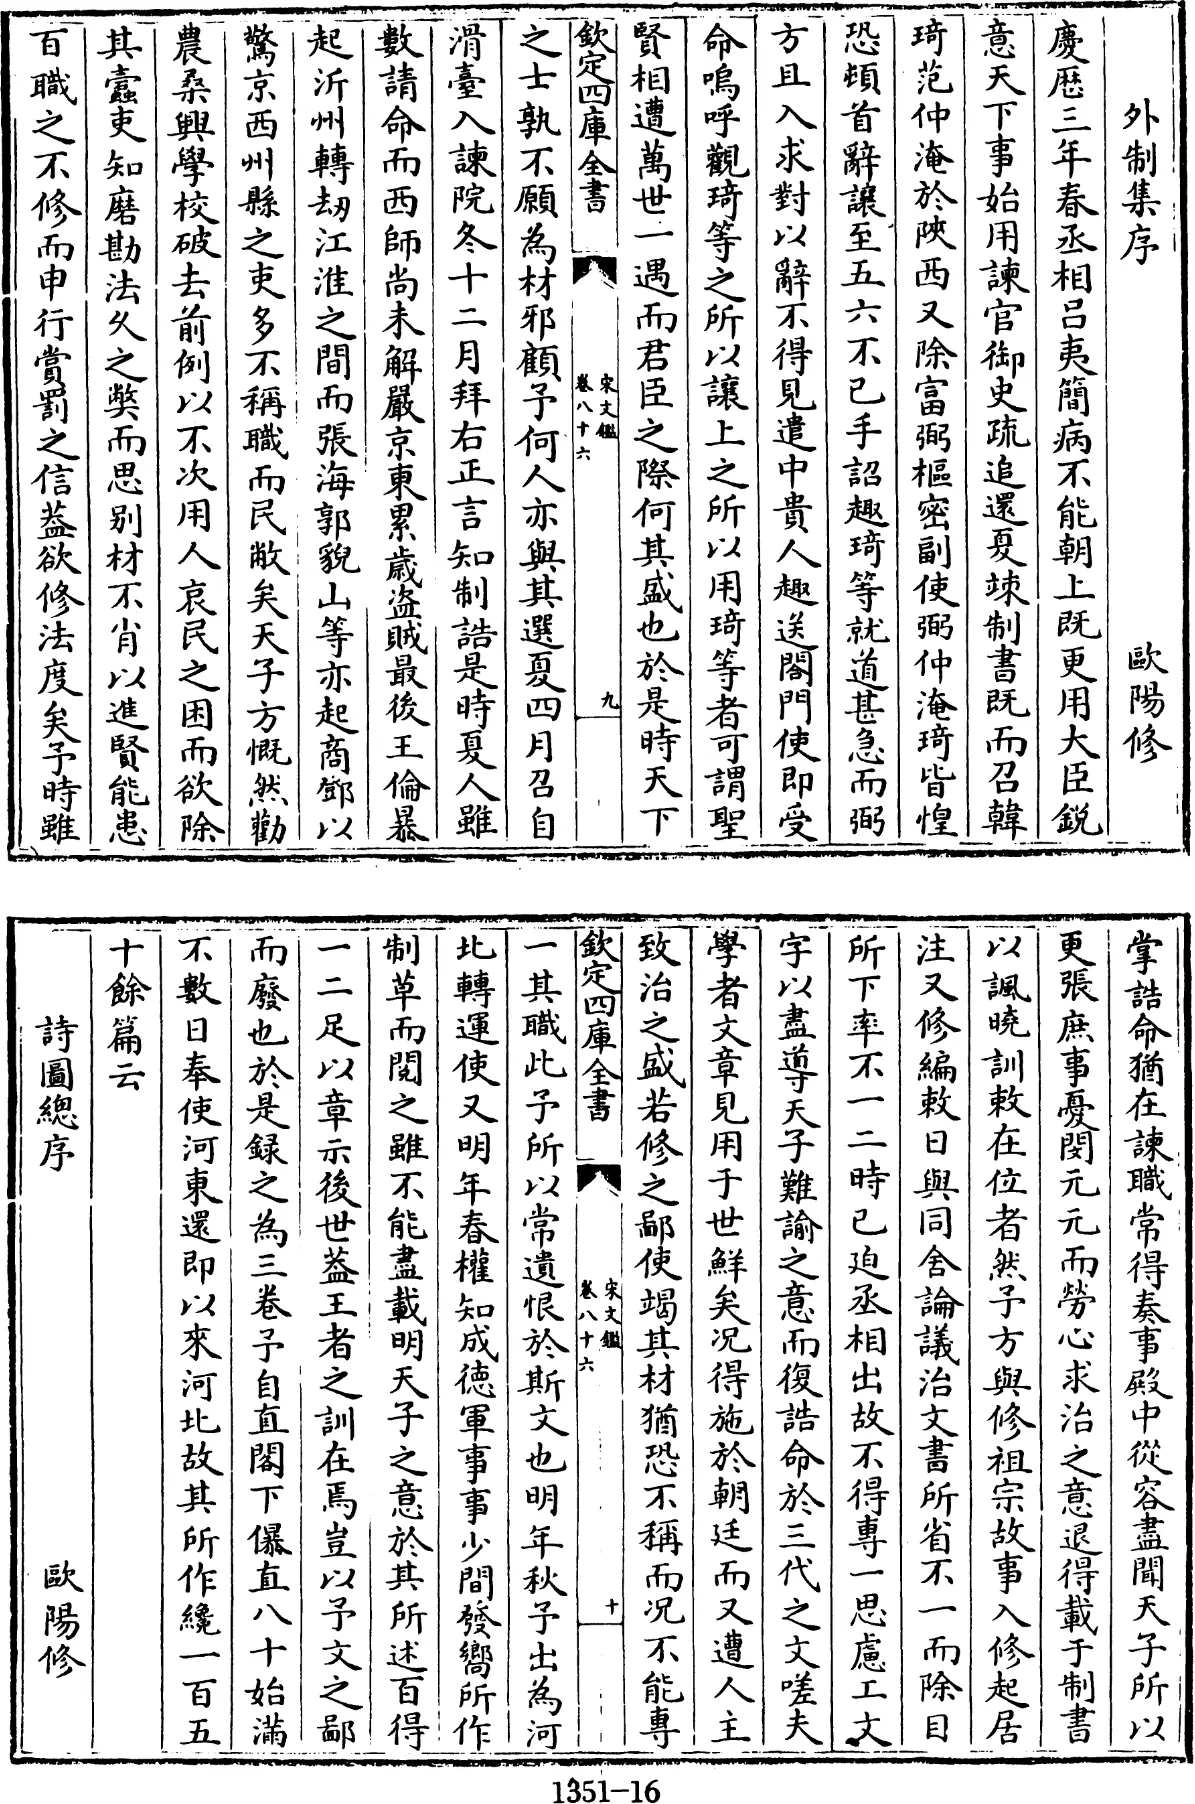 外制集序　歐陽修
慶厯三年春丞相吕夷簡病不能朝上既更用大臣鋭
意天下事始用諫官御史疏追還夏竦制書既而召韓
琦范仲淹於陜西又除富弼樞密副使弼仲淹琦皆惶
恐頓首辭讓至五六不已手詔趣琦等就道甚急而弼
方且入求對以辭不得見遣中貴人趣送閤門使即受
命嗚呼觀琦等之所以讓上之所以用琦等者可謂聖
賢相遭萬世一遇而君臣之際何其盛也於是時天下
欽定四庫全書
宋文鑑
卷八十六
九
之士孰不願為材邪顧予何人亦與其選夏四月召自
滑臺入諫院冬十二月拜右正言知制誥是時夏人雖
數請命而西師尚未解嚴京東累歲盗賊最後王倫暴
起沂州轉刼江淮之間而張海郭貌山等亦起商鄧以
驚京西州縣之吏多不稱職而民敝矣天子方慨然勸
農桑興學校破去前例以不次用人哀民之困而欲除
其蠧吏知磨勘法久之弊而思别材不肖以進賢能患
百職之不修而申行賞罰之信葢欲修法度矣予時雖
掌誥命猶在諫職常得奏事殿中從容盡聞天子所以
更張庶事憂閔元元而勞心求治之意退得載于制書
以諷曉訓敕在位者然予方與修祖宗故事入修起居
注又修編敕日與同舍論議治文書所省不一而除目
所下率不一二時已迫丞相出故不得專一思慮工文
字以盡導天子難諭之意而復誥命於三代之文嗟夫
學者文章見用于世鮮矣况得施於朝廷而又遭人主
致治之盛若修之鄙使竭其材猶恐不稱而况不能專
欽定四庫全書
宋文鑑
卷八十六
十
一其職此予所以常遺恨於斯文也明年秋予出為河
北轉運使又明年春權知成德軍事事少間發嚮所作
制草而閱之雖不能盡載明天子之意於其所述百得
一二足以章示後世葢王者之訓在焉豈以予文之鄙
而廢也於是録之為三卷予自直閣下儤直八十始滿
不數日奉使河東還即以來河北故其所作纔一百五
十餘篇云
詩圖總序　歐陽修
1351-16